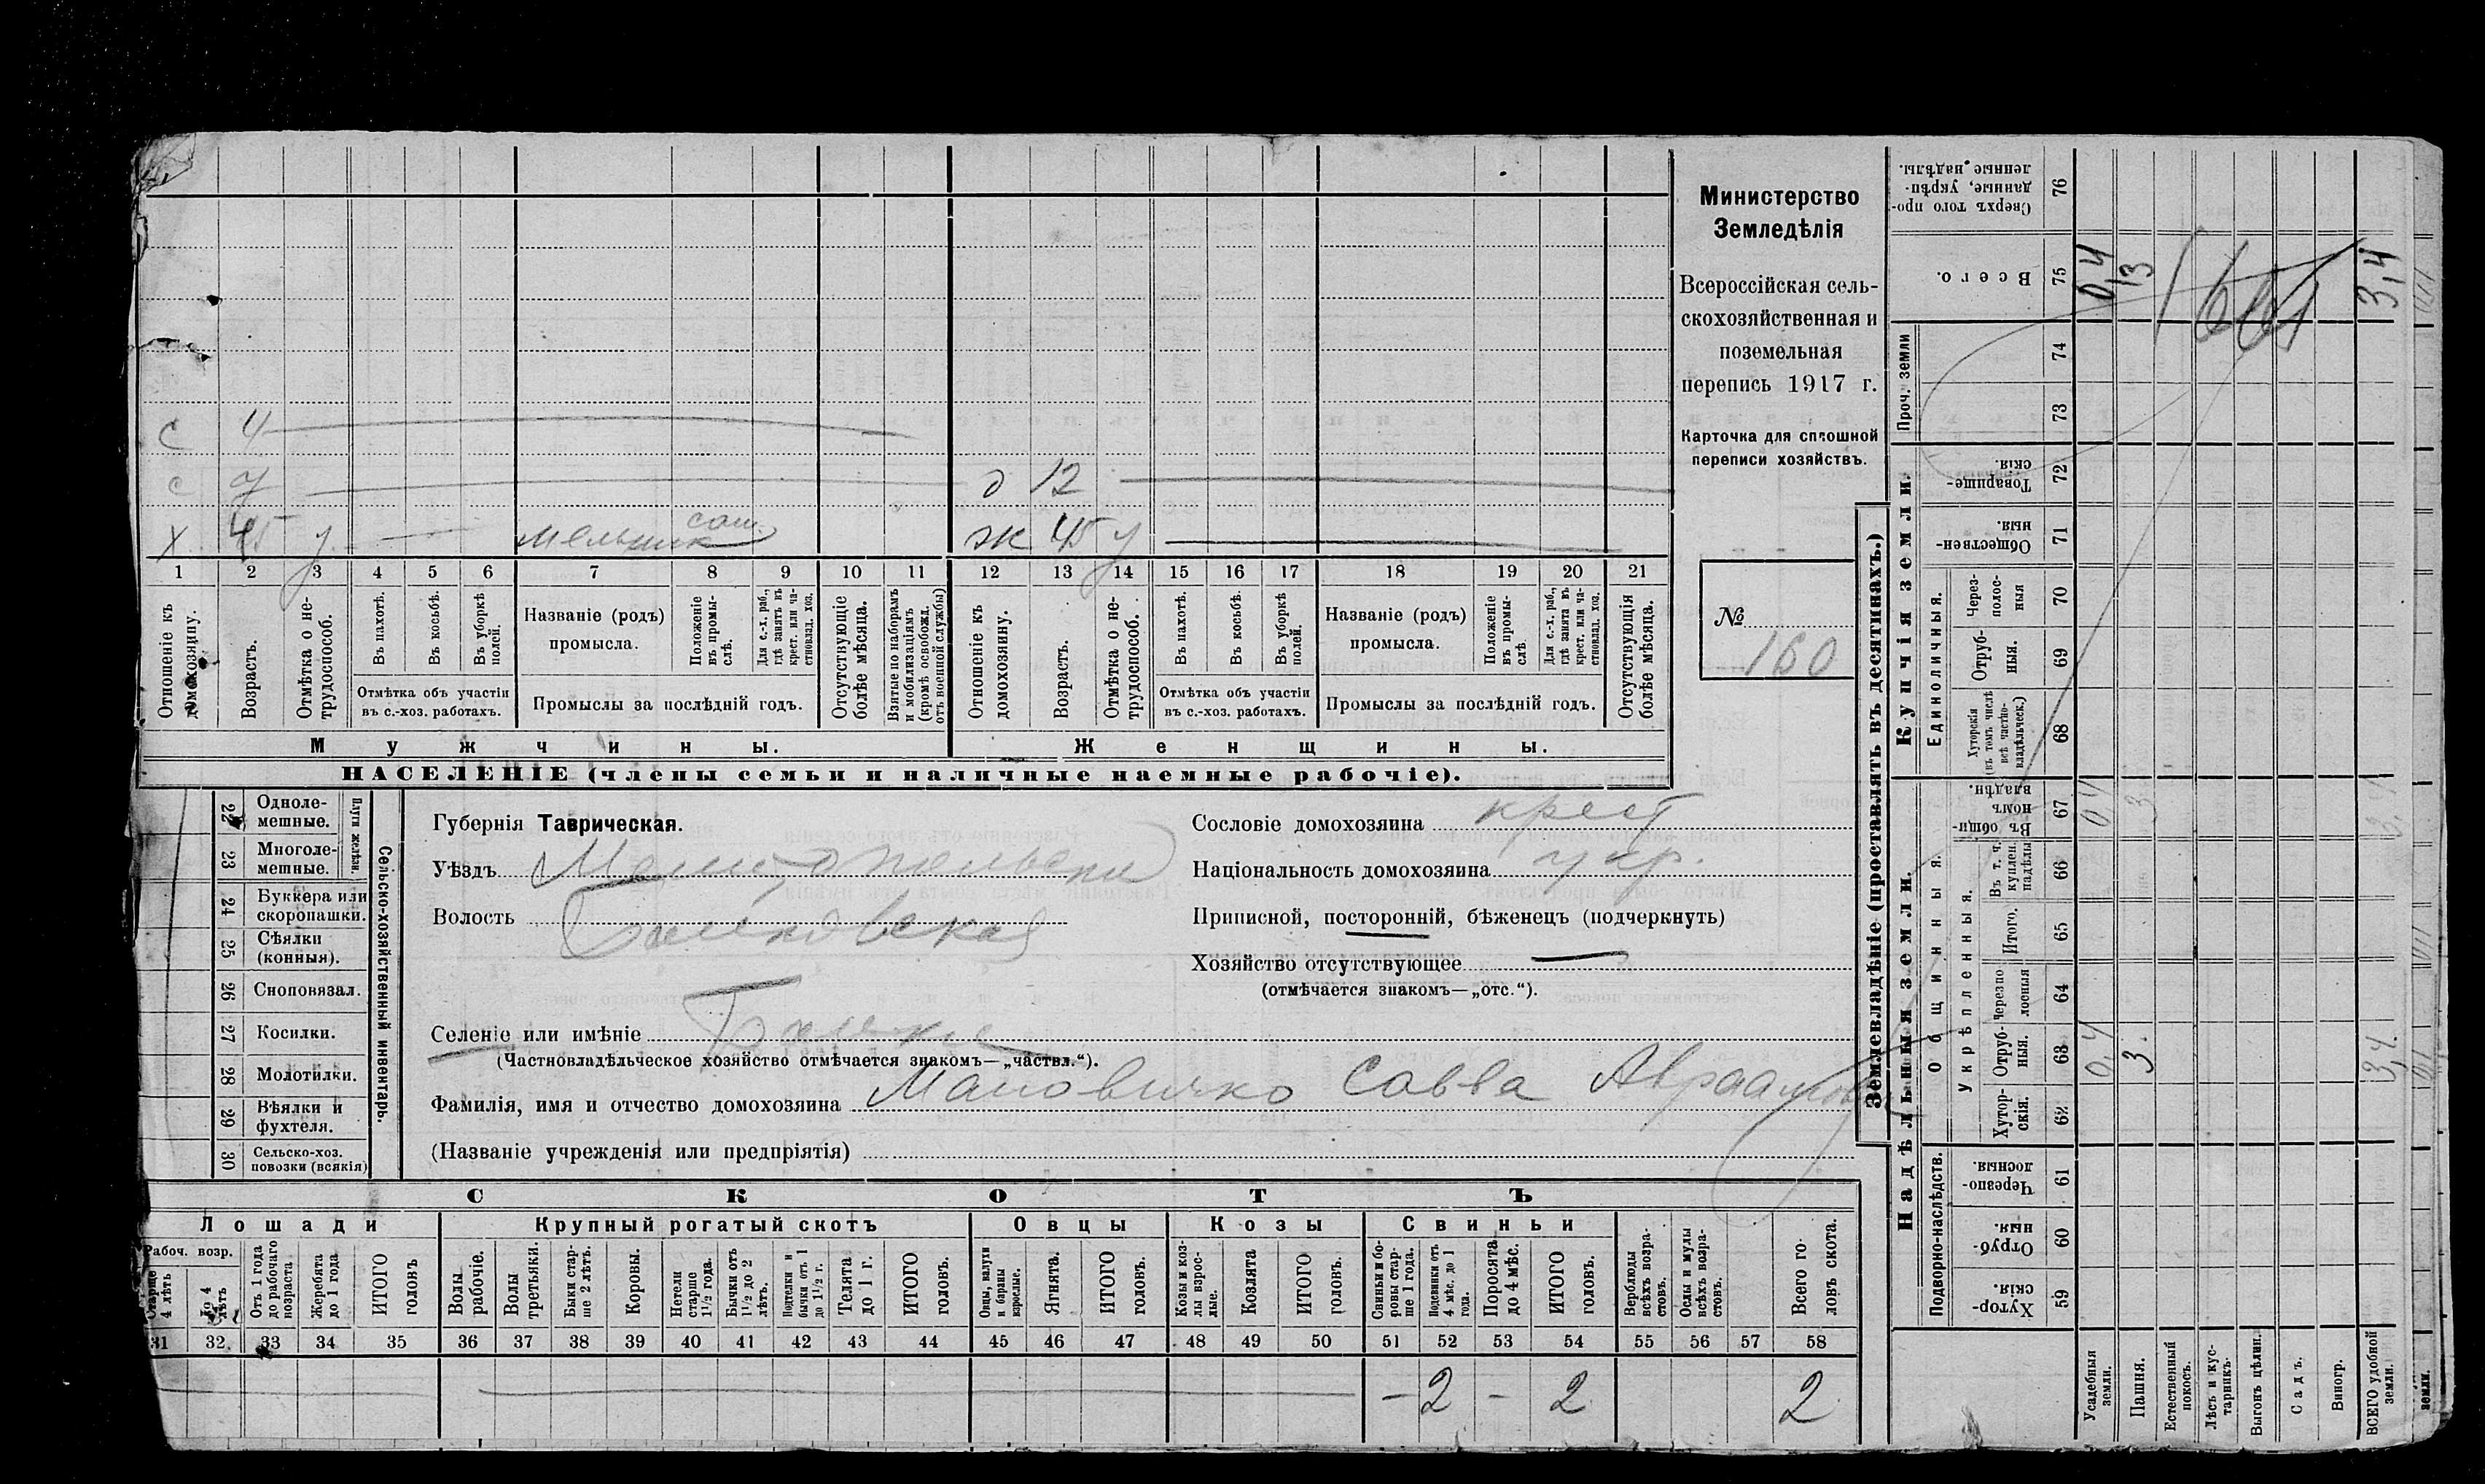 с 4
с 7 д 12
х 45 у — мельник сам. ж 45 у
1 2 3 4 5 6 7 8 9 10 11 12 13 14 15 16 17 18 19 20 21
Отношеніе къ домохозяину.
Возрастъ.
Отмѣтка о не-трудоспособ.
Въ пахотѣ.
Въ косьбѣ.
Въ уборкѣ полей.
Отмѣтка объ участіи
въ с.-хоз. работахъ.
Названіе (родъ)
промысла.
Положеніе въ промы-слѣ.
Для с.-х. раб., гдѣ занятъ въ крест. или ча-стновлад. хоз.
Промыслы за послѣдній годъ.
Отсутствующіе болѣе мѣсяца.
Взятые по наборамъ и мобилизаціямъ (кромѣ освобожд. отъ военной службы)
Отношеніе къ домохозяину.
Возрастъ.
Отмѣтка о не-трудоспособ.
Въ пахотѣ.
Въ косьбѣ.
Въ уборкѣ полей.
Отмѣтка объ участіи
въ с.-хоз. работахъ.
Названіе (родъ)
промысла.
Положеніе въ промы-слѣ
Для с.-х. раб., гдѣ занята въ крест. или ча-стновлад. хоз.
Промыслы за послѣдній годъ.
Отсутствующія болѣе мѣсяца.
Мужчины. Женщины.
НАСЕЛЕНІЕ (члены семьи и наличные наемные рабочіе).
Министерство
Земледѣлія
Всероссійская сель-
скохозяйственная и
поземельная
перепись 1917 г.
Карточка для сплошной
переписи хозяйствъ.
№
160
22 Одноле-мешные.
23 Многоле-мешные.
Плуги желѣзн.
24 Буккера или скоропашки.
25 Сѣялки (конныя).
26 Сноповязал.
27 Косилки.
28 Молотилки.
29 Вѣялки и фухтеля.
30 Сельско-хоз. повозки (всякія)
Сельско-хозяйственный инвентарь.
Губернія Таврическая.
Уѣздъ Мелитопольскій
Волость Балковская
Селеніе или имѣніе Балки
(Частновладѣльческое хозяйство отмѣчается знакомъ—„частвл.“).
Сословіе домохозяина крест
Національность домохозяина укр.
Приписной, посторонній, бѣженецъ (подчеркнуть)
Хозяйство отсутствующее —
(отмѣчается знакомъ—„отс.“).
Фамилія, имя и отчество домохозяина Маловичко Савва Авраамов
(Названіе учрежденія или предпріятія)
СКОТЪ
Лошади Крупный рогатый скотъ Овцы Козы Свиньи
Рабоч. возр.
Старше 4 лѣтъ
До 4 лѣтъ
Отъ 1 года до рабочаго возраста
Жеребята до 1 года
ИТОГО головъ
Волы рабочіе.
Волы третьяки.
Быки стар-ше 2 лѣтъ.
Коровы.
Нетели старше 1½ года.
Бычки отъ 1½ до 2 лѣтъ.
Подтелки и бычки отъ 1 до 1½ г.
Телята до 1 г.
ИТОГО головъ.
Овцы, валухи и бараны взрослые.
Ягнята.
ИТОГО головъ.
Козы и коз-лы взрос-лые.
Козлята
ИТОГО головъ.
Свиньи и бо-ровы стар-ше 1 года.
Подсвинки отъ 4 мѣс. до 1 года.
Поросята до 4 мѣс.
ИТОГО головъ.
Верблюды всѣхъ возра-стовъ.
Ослы и мулы всѣхъ возра-стовъ.
Всего го-ловъ скота.
31 32 33 34 35 36 37 38 39 40 41 42 43 44 45 46 47 48 49 50 51 52 53 54 55 56 57 58
— 2 — 2 2
Землевладѣніе (проставлять въ десятинахъ.)
Купчія земли.
Надѣльныя земли.
Сверхъ того про-данные, укрѣп-ленные надѣлы. 76
Всего. 75 0,4 13 3,4
Проч. земли 74 73
Товарище-скія. 72
Обществен-ныя. 71
Единоличныя.
Через-полос-ныя 70
Отруб-ныя. 69
Хуторскія (въ томъ числѣ всѣ частно-владѣльческ.) 68
Общинныя.
Въ общи-номъ владѣн. 67 0,4 3 3,4
Укрѣпленныя.
Въ т. ч. куплен. надѣлы 66
Итого. 65
Черезпо-лосныя 64
Отруб-ныя. 63 0,4 3. 3,4
Хутор-скія. 62
Подворно-наслѣдств.
Черезпо-лосныя. 61
Отруб-ныя. 60
Хутор-скія. 59
Усадебныя земли.
Пашня.
Естественный покосъ.
Лѣсъ и кус-тарникъ.
Выгонъ цѣлин.
Садъ.
Виногр.
ВСЕГО удобной земли.
земли.